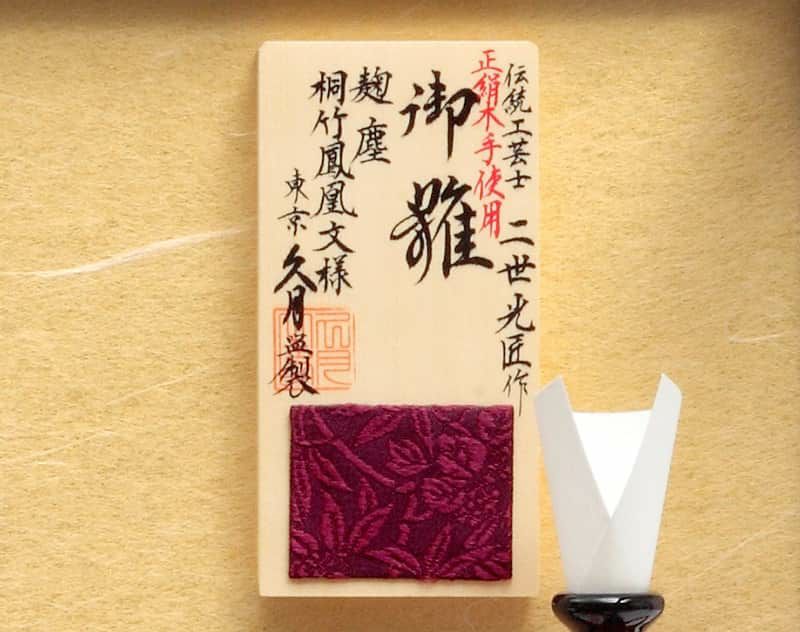 伝統工芸士 二世光匠作
正絹木手使用
御雛
麹塵
桐竹鳳凰文様
東京 久月 監製